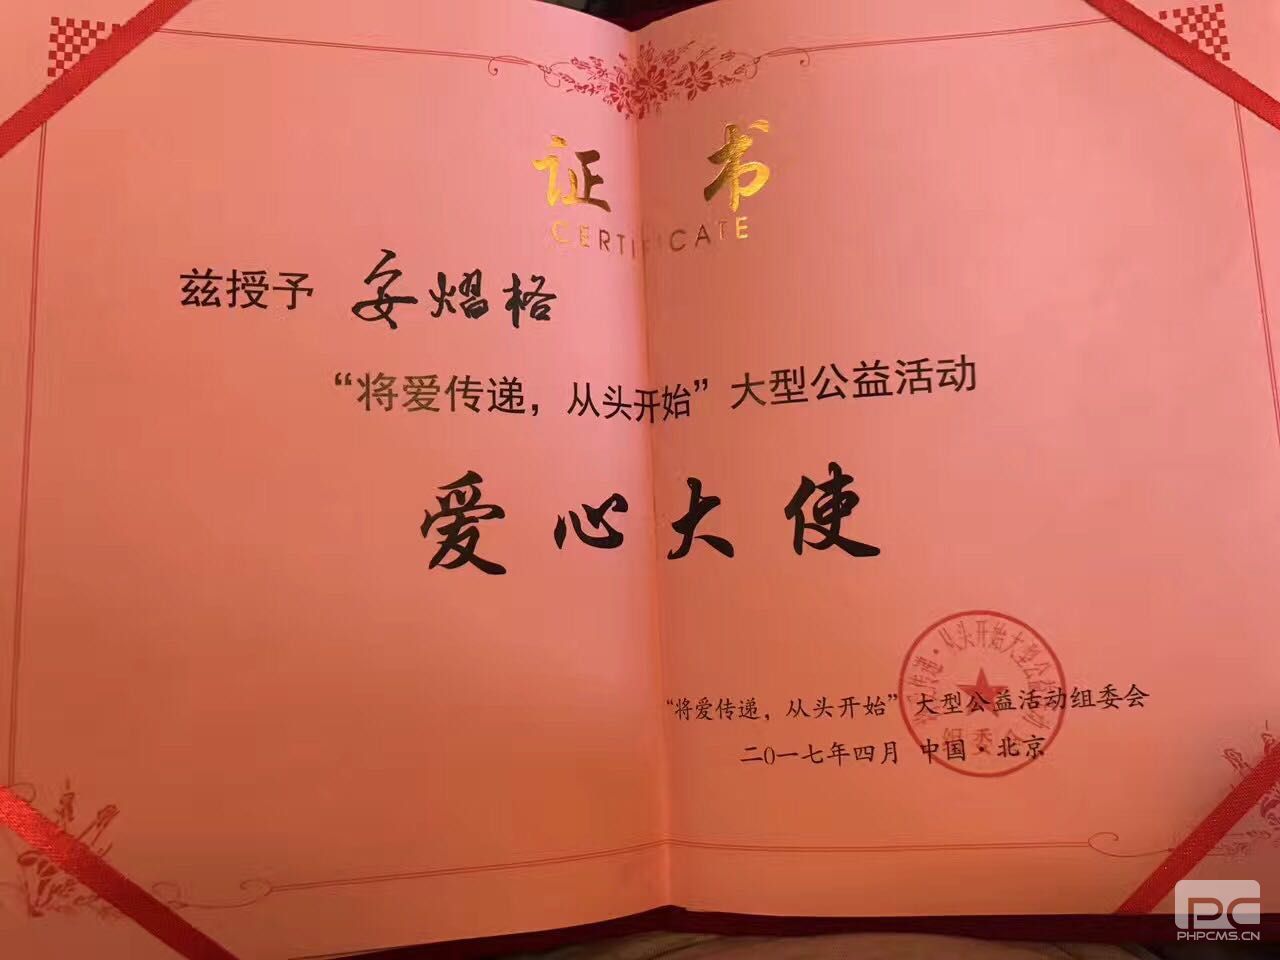 证 书
CERTIFICATE
兹授予 安熠格
“将爱传递，从头开始”大型公益活动
爱心大使
“将爱传递，从头开始”大型公益活动组委会
二〇一七年四月 中国·北京
传递·从头开始大型公益活动
组委会
PC
PHPCMS.CN